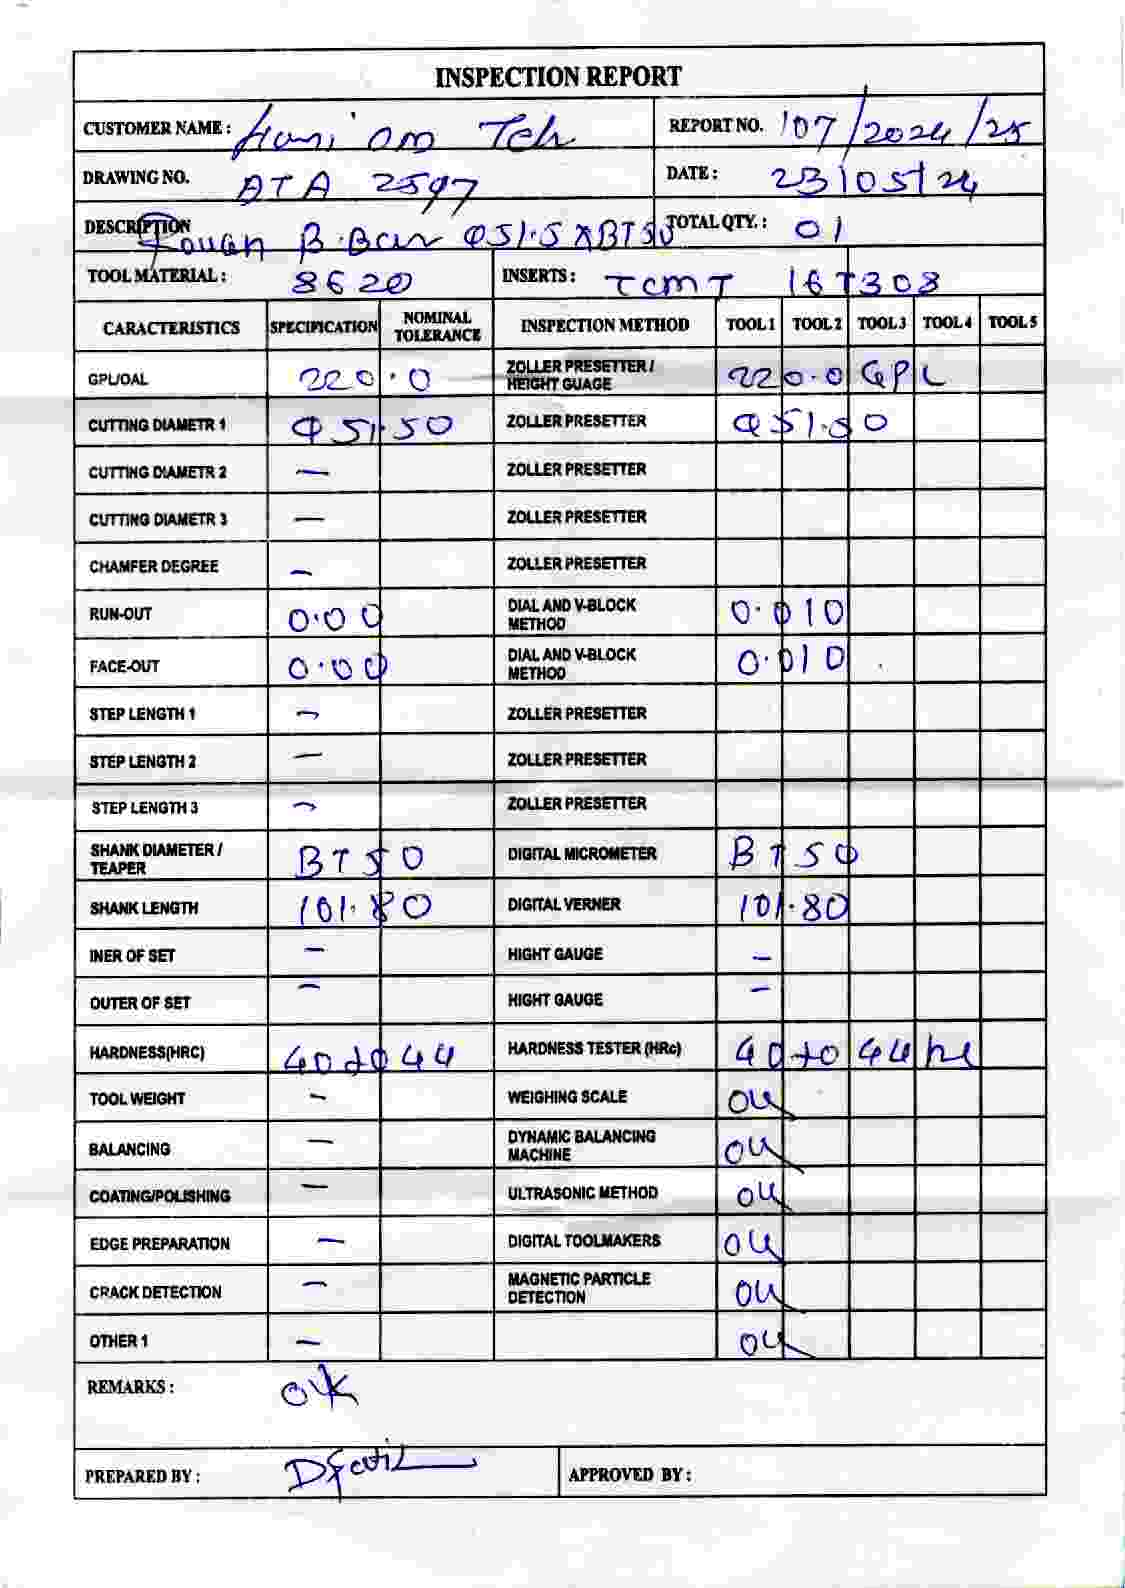 INSPECTION REPORT
CUSTOMER NAME : Hari om Tech
REPORT NO. 107/2024/25
DRAWING NO. DTA 2597
DATE : 23/05/24
DESCRIPTION B.Bar Φ51.5XBT50
TOTAL QTY. : 01
TOOL MATERIAL : 8620
INSERTS : TCMT 16T308
CARACTERISTICS SPECIFICATION NOMINAL TOLERANCE INSPECTION METHOD TOOL 1 TOOL 2 TOOL 3 TOOL 4 TOOL 5
GPL/OAL 220.0 ZOLLER PRESETTER / HEIGHT GUAGE 220.0 GPL
CUTTING DIAMETR 1 Φ51.50 ZOLLER PRESETTER Φ51.50
CUTTING DIAMETR 2 — ZOLLER PRESETTER
CUTTING DIAMETR 3 — ZOLLER PRESETTER
CHAMFER DEGREE — ZOLLER PRESETTER
RUN-OUT 0.00 DIAL AND V-BLOCK METHOD 0.010
FACE-OUT 0.00 DIAL AND V-BLOCK METHOD 0.010
STEP LENGTH 1 — ZOLLER PRESETTER
STEP LENGTH 2 — ZOLLER PRESETTER
STEP LENGTH 3 — ZOLLER PRESETTER
SHANK DIAMETER / TEAPER BT50 DIGITAL MICROMETER BT50
SHANK LENGTH 101.80 DIGITAL VERNER 101.80
INER OF SET — HIGHT GAUGE —
OUTER OF SET — HIGHT GAUGE —
HARDNESS(HRC) 40 to 44 HARDNESS TESTER (HRc) 40 to 44
TOOL WEIGHT — WEIGHING SCALE OK
BALANCING — DYNAMIC BALANCING MACHINE OK
COATING/POLISHING — ULTRASONIC METHOD OK
EDGE PREPARATION — DIGITAL TOOLMAKERS OK
CRACK DETECTION — MAGNETIC PARTICLE DETECTION OK
OTHER 1 — OK
REMARKS : OK
PREPARED BY :
APPROVED BY :